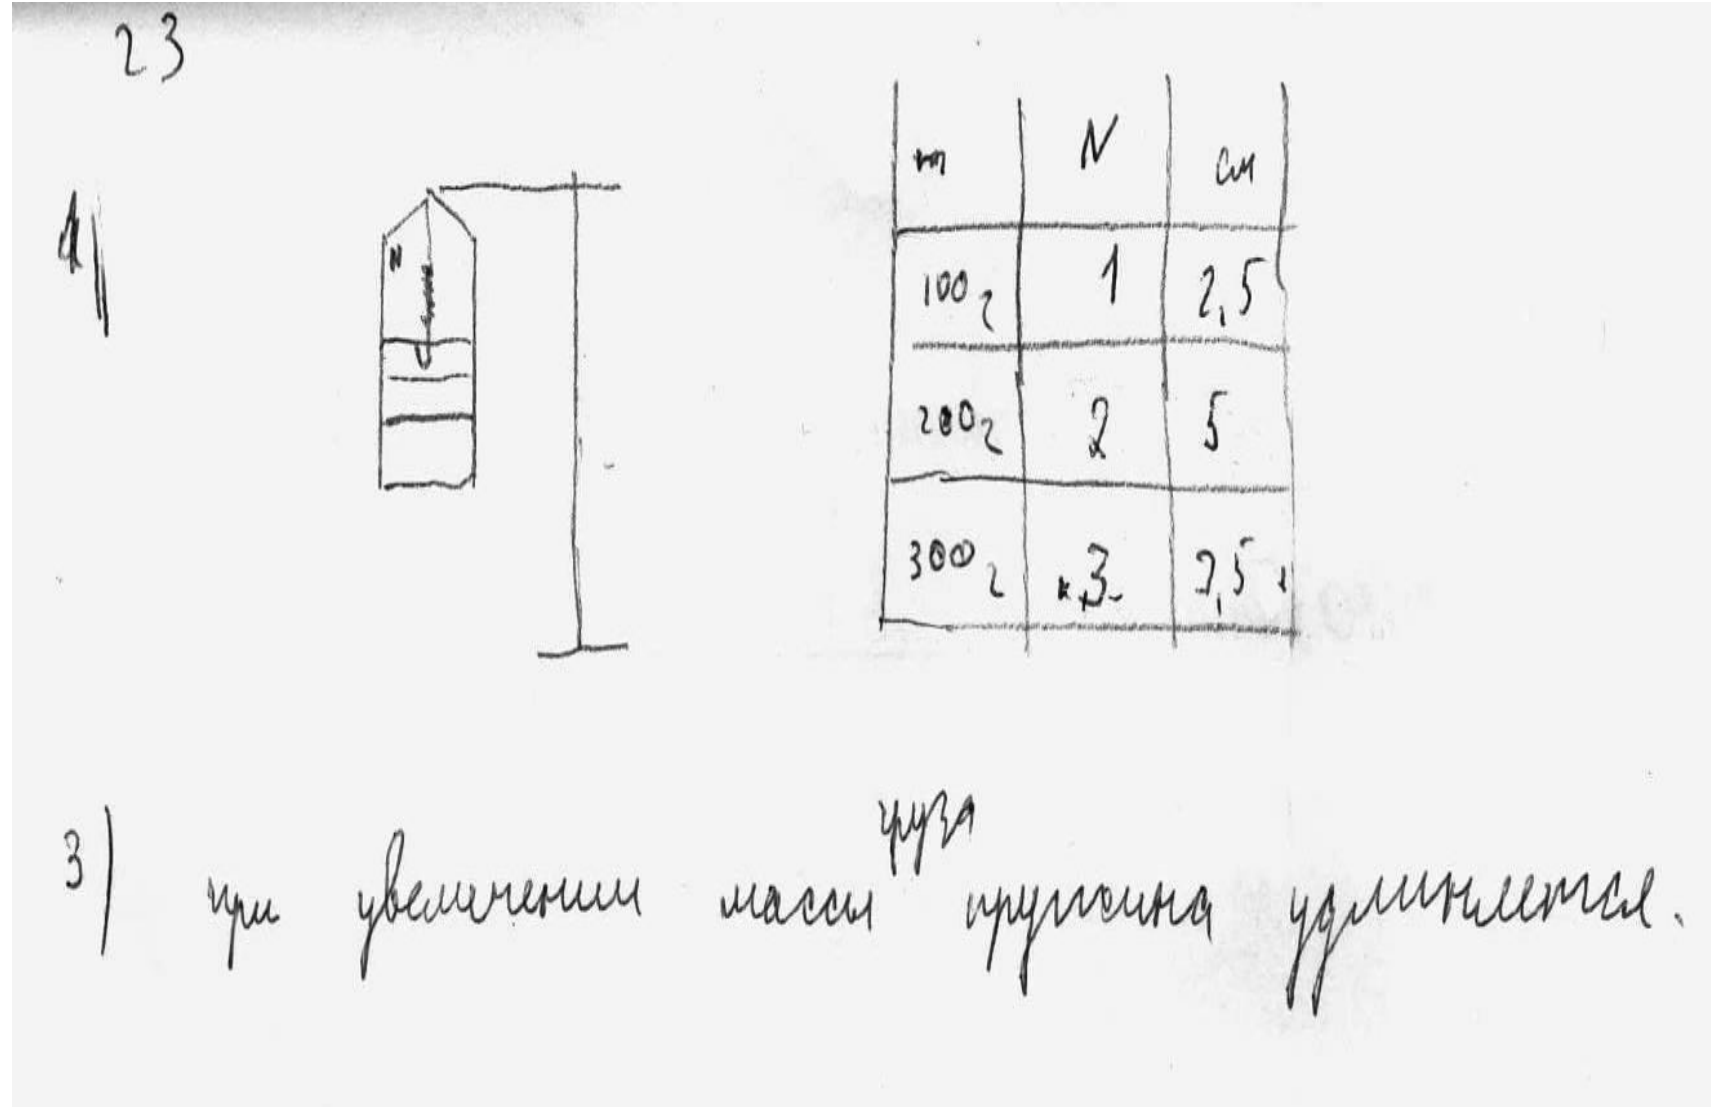 23
1)
m N см
100г 1 2,5
200г 2 5
300г 3 7,5
N
3) при увеличении массы груза пружина удлиняется.